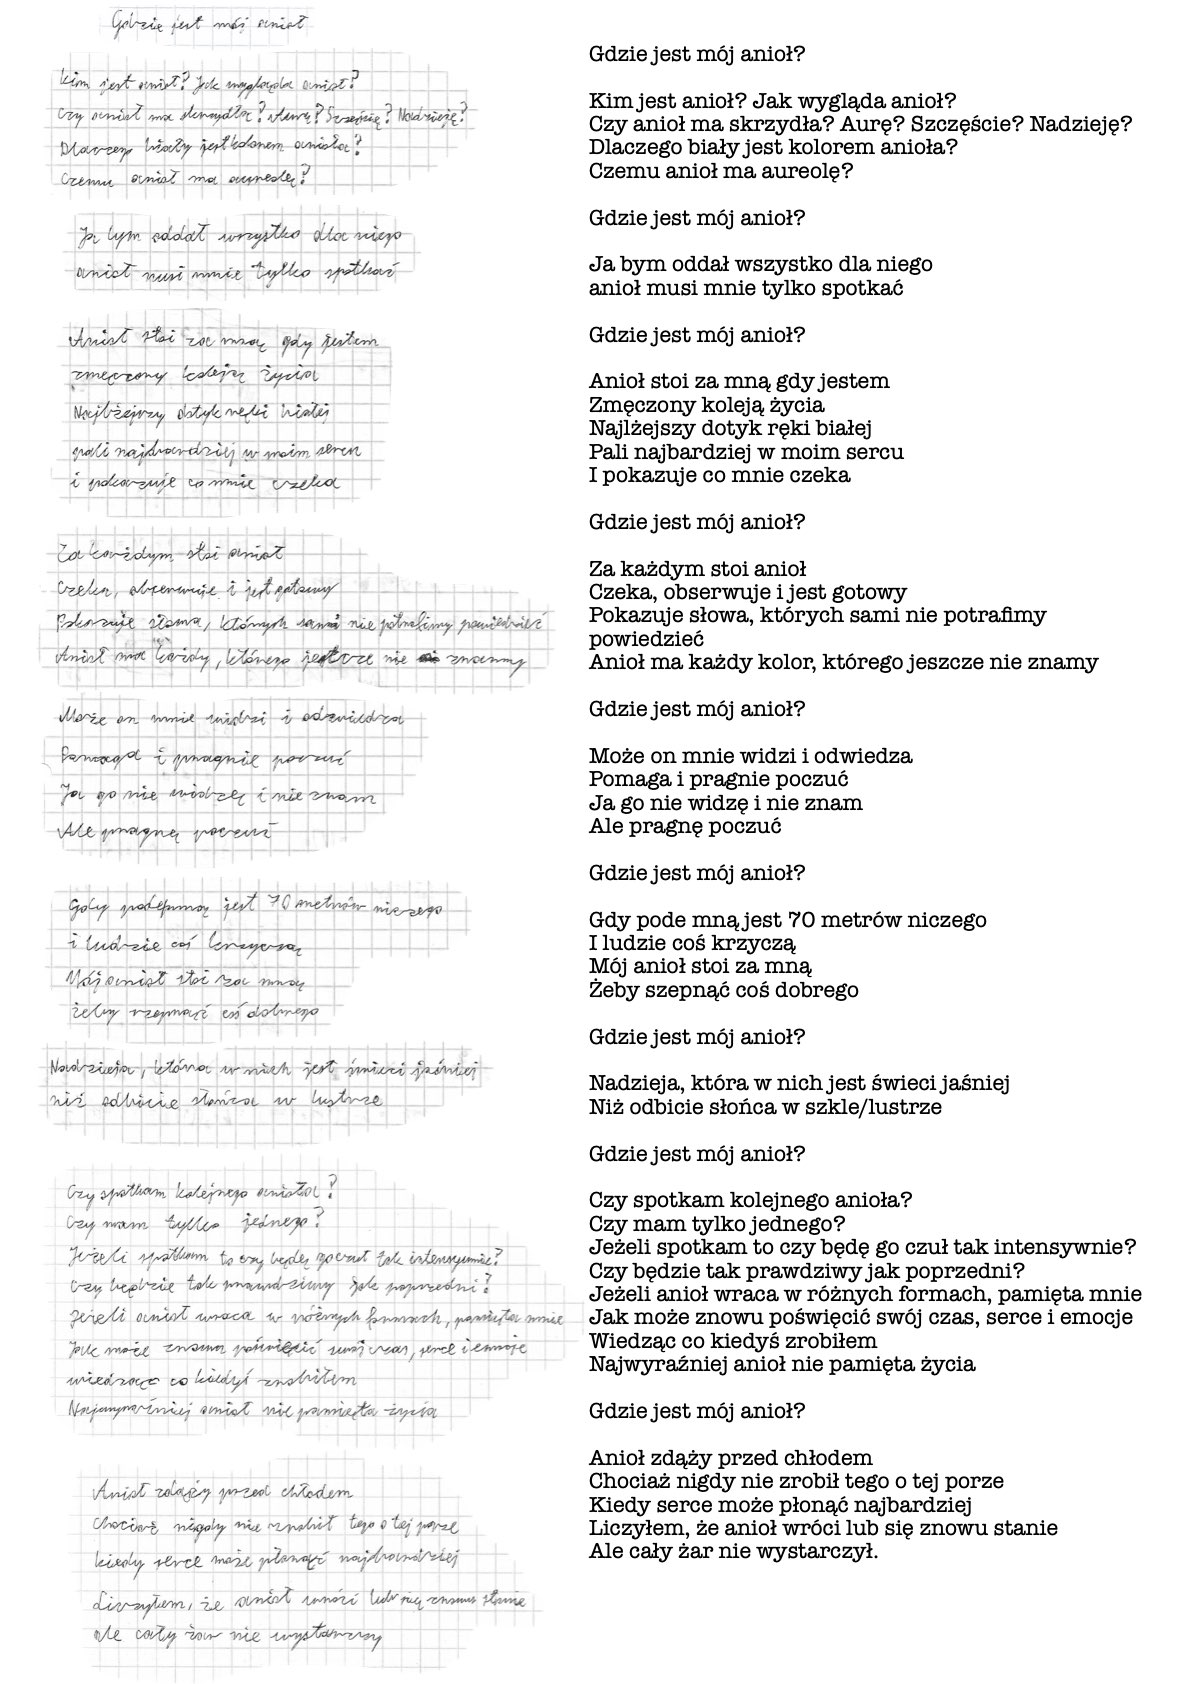 Gdzie jest mój anioł
Kim jest anioł? Jak wygląda anioł?
Czy anioł ma skrzydła? Aurę? Szczęście? Nadzieję?
Dlaczego biały jest kolorem anioła?
Czemu anioł ma aureolę?
Ja bym oddał wszystko dla niego
anioł musi mnie tylko spotkać
Anioł stoi za mną gdy jestem
zmęczony koleją życia
Najlżejszy dotyk ręki białej
pali najbardziej w moim sercu
i pokazuje co mnie czeka
Za każdym stoi anioł
Czeka, obserwuje i jest gotowy
Pokazuje słowa, których sami nie potrafimy powiedzieć
Anioł ma każdy, którego jeszcze nie znamy
Może on mnie widzi i odwiedza
Pomaga i pragnie poczuć
Ja go nie widzę i nie znam
Ale pragnę poczuć
Gdy pode mną jest 70 metrów niczego
i ludzie coś krzyczą
Mój anioł stoi za mną
żeby szepnąć coś dobrego
Nadzieja, która w nich jest świeci jaśniej
niż odbicie słońca w lustrze
Czy spotkam kolejnego anioła?
Czy mam tylko jednego?
Jeżeli spotkam to czy będę go czuł tak intensywnie?
Czy będzie tak prawdziwy jak poprzedni?
Jeżeli anioł wraca w różnych formach, pamięta mnie
Jak może znowu poświęcić swój czas, serce i emocje
wiedząc co kiedyś zrobiłem
Najwyraźniej anioł nie pamięta życia
Anioł zdąży przed chłodem
Chociaż nigdy nie zrobił tego o tej porze
kiedy serce może płonąć najbardziej
Liczyłem, że anioł wróci lub się znowu stanie
ale cały żar nie wystarczy
Gdzie jest mój anioł?
Kim jest anioł? Jak wygląda anioł?
Czy anioł ma skrzydła? Aurę? Szczęście? Nadzieję?
Dlaczego biały jest kolorem anioła?
Czemu anioł ma aureolę?
Gdzie jest mój anioł?
Ja bym oddał wszystko dla niego
anioł musi mnie tylko spotkać
Gdzie jest mój anioł?
Anioł stoi za mną gdy jestem
Zmęczony koleją życia
Najlżejszy dotyk ręki białej
Pali najbardziej w moim sercu
I pokazuje co mnie czeka
Gdzie jest mój anioł?
Za każdym stoi anioł
Czeka, obserwuje i jest gotowy
Pokazuje słowa, których sami nie potrafimy
powiedzieć
Anioł ma każdy kolor, którego jeszcze nie znamy
Gdzie jest mój anioł?
Może on mnie widzi i odwiedza
Pomaga i pragnie poczuć
Ja go nie widzę i nie znam
Ale pragnę poczuć
Gdzie jest mój anioł?
Gdy pode mną jest 70 metrów niczego
I ludzie coś krzyczą
Mój anioł stoi za mną
Żeby szepnąć coś dobrego
Gdzie jest mój anioł?
Nadzieja, która w nich jest świeci jaśniej
Niż odbicie słońca w szkle/lustrze
Gdzie jest mój anioł?
Czy spotkam kolejnego anioła?
Czy mam tylko jednego?
Jeżeli spotkam to czy będę go czuł tak intensywnie?
Czy będzie tak prawdziwy jak poprzedni?
Jeżeli anioł wraca w różnych formach, pamięta mnie
Jak może znowu poświęcić swój czas, serce i emocje
Wiedząc co kiedyś zrobiłem
Najwyraźniej anioł nie pamięta życia
Gdzie jest mój anioł?
Anioł zdąży przed chłodem
Chociaż nigdy nie zrobił tego o tej porze
Kiedy serce może płonąć najbardziej
Liczyłem, że anioł wróci lub się znowu stanie
Ale cały żar nie wystarczył.